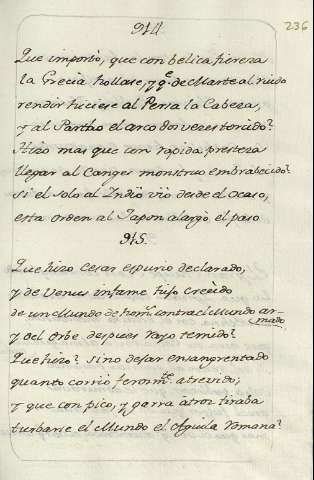 914.
236
Que importó, que con belica fiereza
la Grecia hollase, y q.e de Marte al ruido
rendir hiciese al Persa la Cabeza,
y al Partho el arco dos vezes torcido?
Hizo mas que con rapida presteza
llegar al Ganges monstruo embrabecido?
si el solo al Indio vió desde el Ocaso,
esta orden al Japon alargó el paso
915.
Que hizo Cesar espurio declarado,
y de Venus infame hijo creído
de un Mundo de hom.s contra el Mundo ar-
mado
y del Orbe despues rayo temido?
Que hizo? sino dejar ensangrentado
quanto corrió ferom.te atrevido;
y que con pico, y garra atroz tiraba
turbarse el Mundo el Aguila romana?